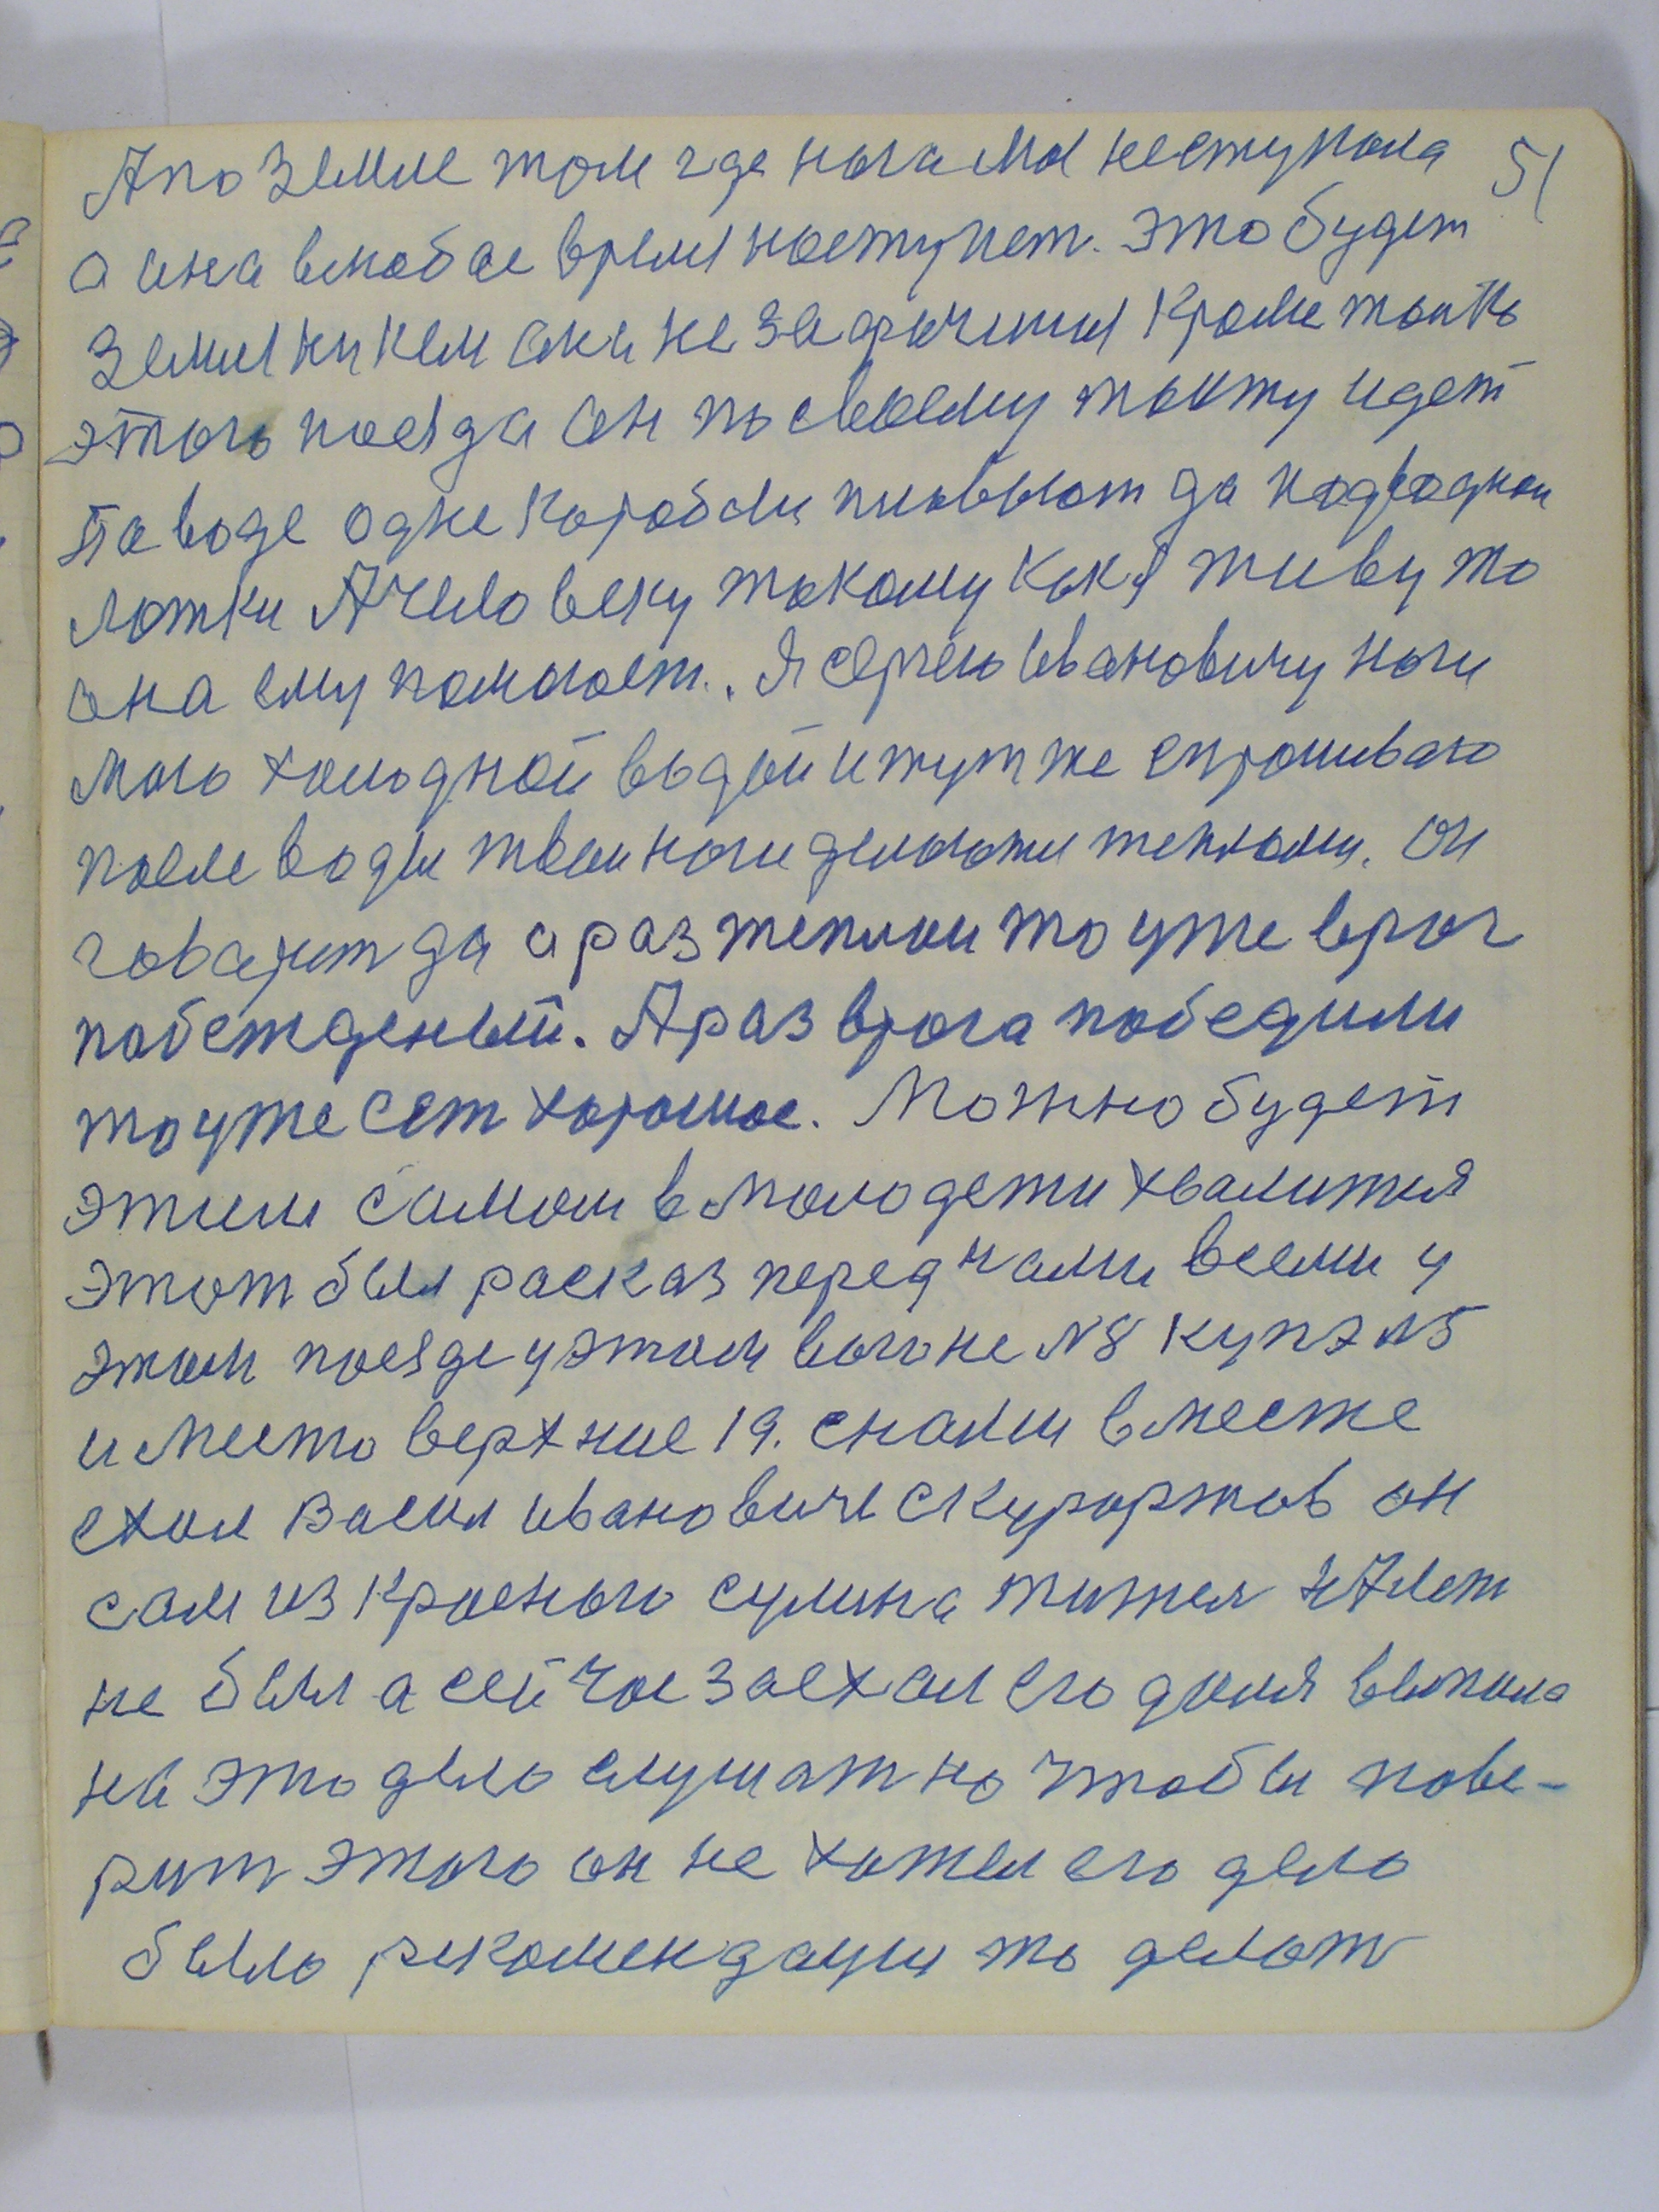 А по земле том где ногами не ступала 51
а она влюбое время наступет. Это будет
земля никем она не захрачитя кроме токо
этого поезда он по своему токту идет
По воде одне корабли плывыют да подводнои
лотки А человеку такому как я живу то
она ему помогает. Я Сергею Ивановичу ноги
мою холодной водой и тут же спрошиваю
после воды твои ноги делаютя теплыми. Он
говарит да а раз теплои то уже враг
побежденый. А раз врога победили
то уже ест хорошое. Можно будет
этим самом в молодежи хвалится
этот был расказ перед нами всеми у
этом поезде у этом вогоне №8 купэ №5
и место верхние 19. снами вместе
ехал Васил Иванович с курортов он
сам из Красного сулина жител 17 лет
не был а сейчас заехал его доля выпала
на это дело слушат но чтобы пове-
рит этого он не хотел его дело
было рекомендации то делат